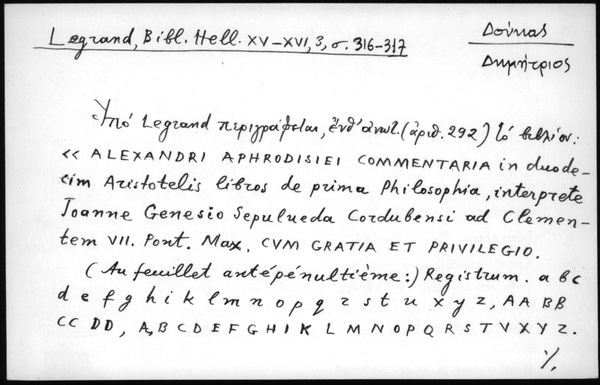 Legrand, Bibl. Hell. XV–XVI, 3, σ. 316-317
Δούκας
Δημήτριος
Ὑπό Legrand περιγράφεται, ἔνθ' ἀνωτ. (ἀριθ. 292) τό βιβλίον:
<< ALEXANDRI APHRODISIEI COMMENTARIA in duode-
cim Aristotelis libros de prima Philosophia, interprete
Joanne Genesio Sepulueda Cordubensi ad Clemen-
tem VII. Pont. Max. CVM GRATIA ET PRIVILEGIO.
(Au feuillet antépénultième:) Registrum. a b c
d e f g h i k l m n o p q r s t u x y z, AA BB
CC DD, A, B C D E F G H I K L M N O P Q R S T V X Y Z.
%.